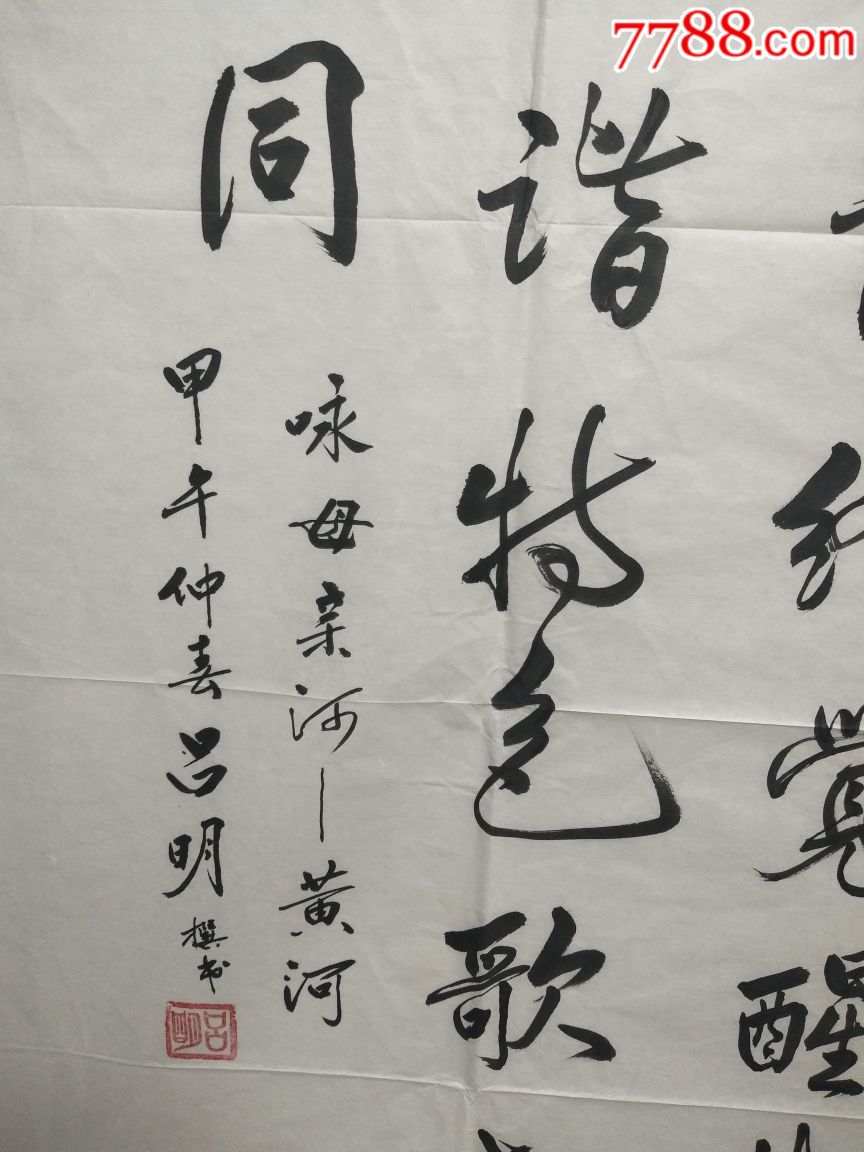 7788.com
覺醒
谐特色歌
同
咏母亲河—黄河
甲午仲喜吕明撰书
吕明